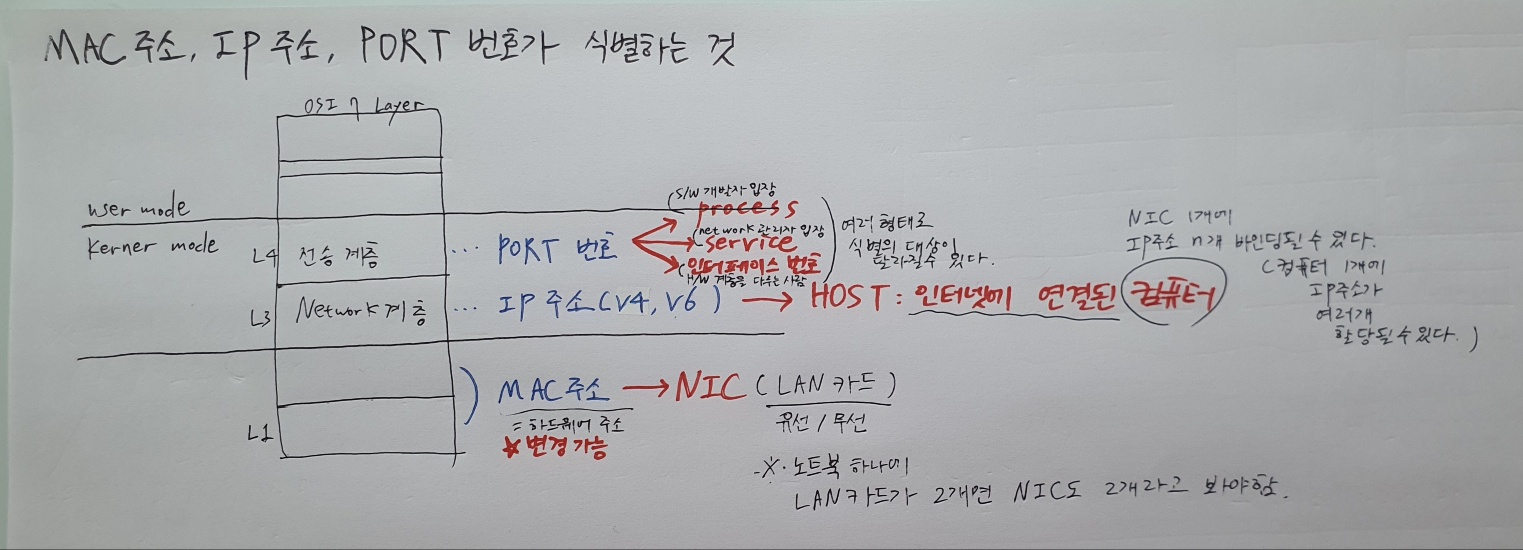 MAC 주소, IP 주소, PORT 번호가 식별하는 것
OSI 7 Layer
user mode
Kerner mode
L4 전송 계층 ... PORT 번호
(S/W 개발자 입장
process
(network 관리자 입장
service
인터페이스 번호
(H/W 계층을 다루는 사람
여러 형태로
식별의 대상이
달라질수 있다.
L3 Network 계층 ... IP 주소(V4, V6) → HOST : 인터넷에 연결된 컴퓨터
NIC 1개에
IP주소 n개 바인딩될 수 있다.
(컴퓨터 1개에
IP주소가
여러개
할당될 수 있다.)
MAC 주소 → NIC (LAN 카드)
= 하드웨어 주소
유선 / 무선
☆ 변경 가능
L1
※. 노트북 하나에
LAN카드가 2개면 NIC도 2개라고 봐야함.